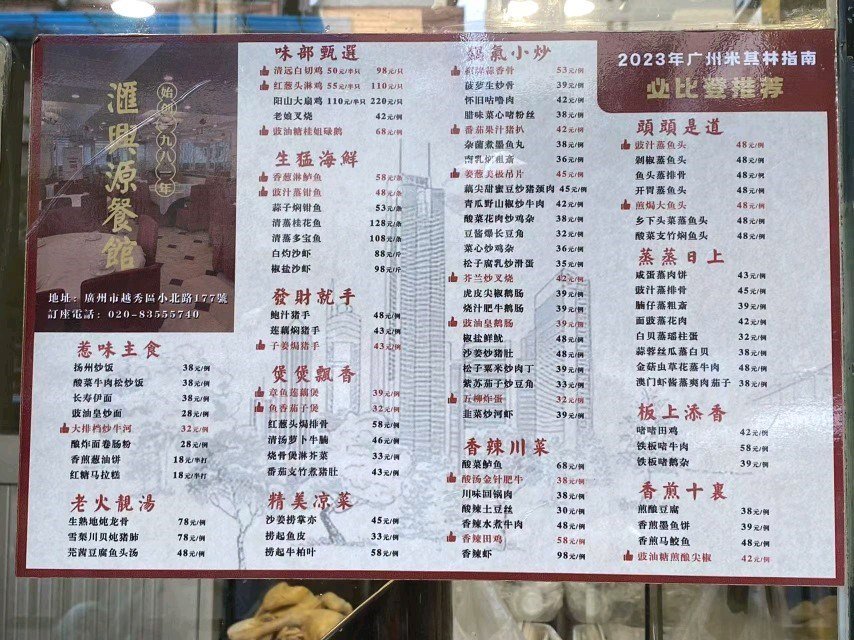 滙興源餐館
始創一九八一年
地址：廣州市越秀區小北路177號
訂座電話：020-83555740
惹味主食
扬州炒饭 38元/例
酸菜牛肉松炒饭 38元/例
长寿伊面 38元/例
豉油皇炒面 28元/例
大排档炒牛河 32元/例
酿炸面卷肠粉 28元/例
香煎葱油饼 18元/半打
红糖马拉糕 18元/半打
老火靓湯
生熟地炖龙骨 78元/例
雪梨川贝炖猪肺 78元/例
芫茜豆腐鱼头汤 48元/例
味部甄選
清远白切鸡 50元/半只 98元/只
红葱头淋鸡 55元/半只 110元/只
阳山大扇鸡 110元/半只 220元/只
老娘叉烧 42元/例
豉油糖桂姐碌鹅 68元/例
生猛海鮮
香葱淋鲈鱼 58元/条
豉汁蒸钳鱼 48元/条
蒜子焖钳鱼 53元/条
清蒸桂花鱼 128元/条
清蒸多宝鱼 108元/条
白灼沙虾 88元/斤
椒盐沙虾 98元/斤
發財就手
鲍汁猪手 48元/例
莲藕焖猪手 43元/例
子姜焗猪手 43元/例
煲煲飄香
章鱼莲藕煲 39元/例
鱼香茄子煲 32元/例
红葱头焗排骨 58元/例
清汤萝卜牛腩 46元/例
烧骨煲淋芥菜 33元/例
番茄支竹煮猪肚 43元/例
精美凉菜
沙姜捞掌亦 45元/例
捞起鱼皮 33元/例
捞起牛柏叶 58元/例
鍋氣小炒
蒜香骨 53元/例
菠萝生炒骨 39元/例
怀旧咕噜肉 42元/例
腊味菜心啫粉丝 38元/例
番茄果汁猪扒 42元/例
杂菌煮墨鱼丸 38元/例
南乳焖粗斋 36元/例
姜葱美极吊片 45元/例
藕尖甜蜜豆炒猪颈肉 45元/例
青瓜野山椒炒牛肉 42元/例
酸菜花肉炒鸡杂 38元/例
豆酱爆长豆角 32元/例
菜心炒鸡杂 36元/例
松子腐乳炒滑蛋 35元/例
芥兰炒叉烧 42元/例
虎皮尖椒鹅肠 39元/例
烧汁肥牛鹅肠 39元/例
豉油皇鹅肠 39元/例
椒盐鲜鱿 48元/例
沙姜炒猪肚 48元/例
松子粟米炒肉丁 39元/例
紫苏茄子炒豆角 33元/例
五柳炸蛋 32元/例
韭菜炒河虾 39元/例
香辣川菜
酸菜鲈鱼 68元/例
酸汤金针肥牛 38元/例
川味回锅肉 38元/例
酸辣土豆丝 30元/例
香辣水煮牛肉 48元/例
香辣田鸡 58元/例
香辣虾 98元/例
2023年广州米其林指南
必比登推荐
頭頭是道
豉汁蒸鱼头 48元/例
剁椒蒸鱼头 48元/例
鱼头蒸排骨 48元/例
开胃蒸鱼头 48元/例
煎焗大鱼头 48元/例
乡下头菜蒸鱼头 48元/例
酸菜支竹焖鱼头 48元/例
蒸蒸日上
咸蛋蒸肉饼 43元/例
豉汁蒸排骨 45元/例
腩仔蒸粗斋 39元/例
面豉蒸花肉 42元/例
白贝蒸瑶柱蛋 32元/例
蒜蓉丝瓜蒸白贝 38元/例
金菇虫草花蒸牛肉 48元/例
澳门虾酱蒸爽肉茄子 38元/例
板上添香
啫啫田鸡 42元/例
铁板啫牛肉 58元/例
铁板啫鹅杂 39元/例
香煎十裏
煎酿豆腐 38元/例
香煎墨鱼饼 39元/例
香煎马鲛鱼 48元/例
豉油糖煎酿尖椒 42元/例